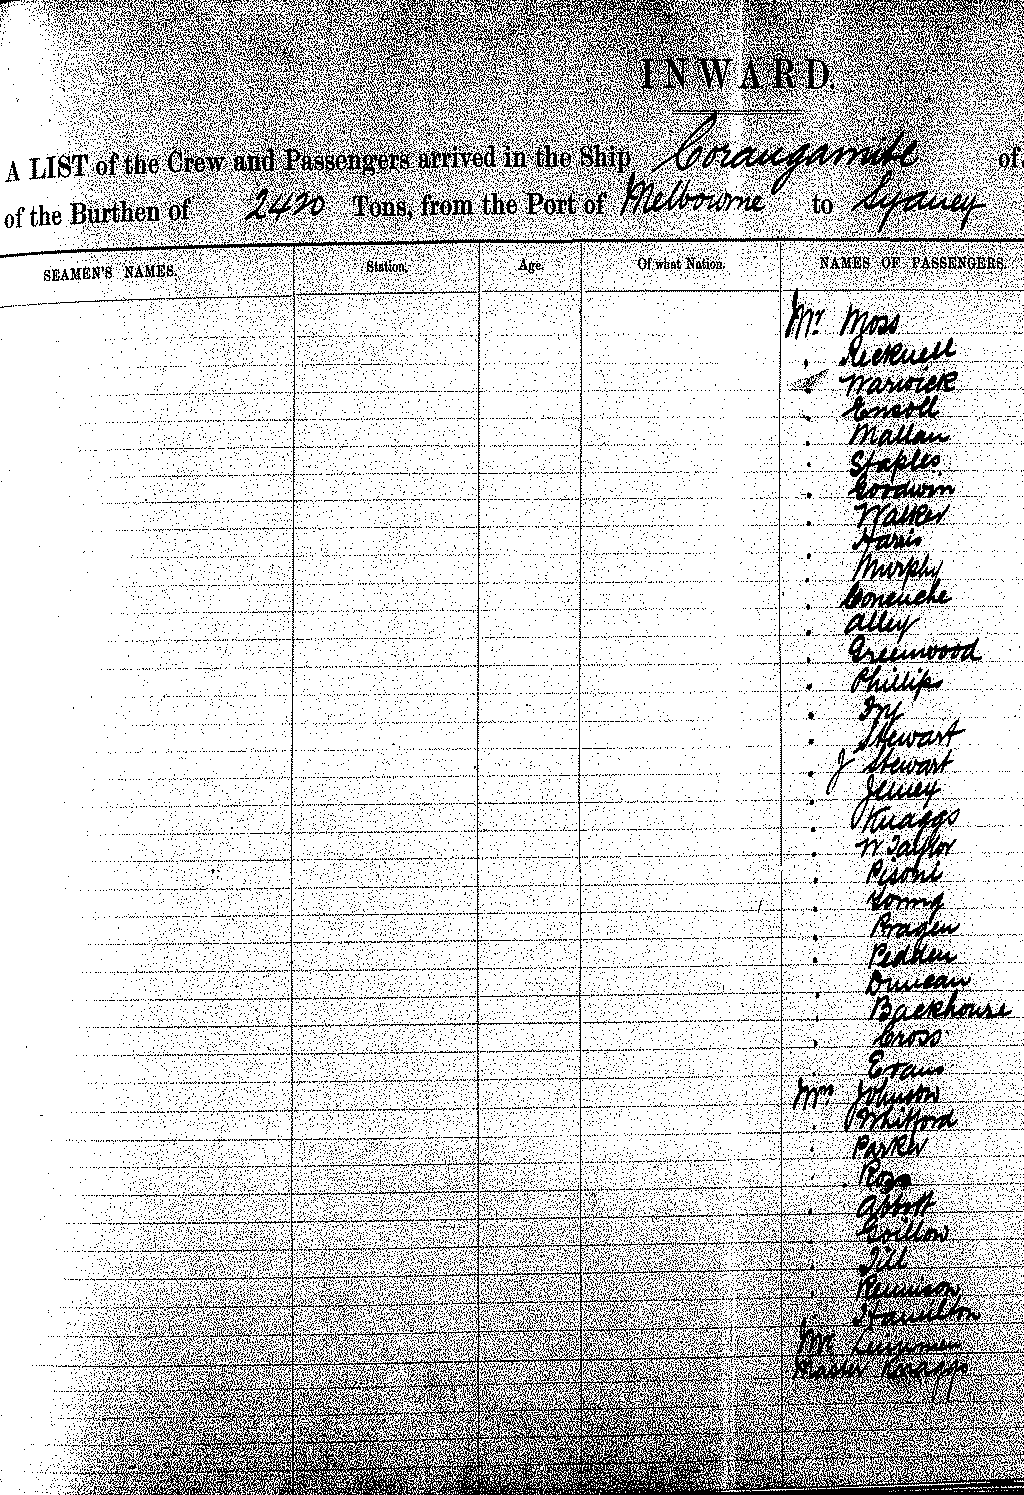 INWARD.
A LIST of the Crew and Passengers arrived in the Ship Corangamite of
of the Burthen of 2420 Tons, from the Port of Melbourne to Sydney
SEAMEN'S NAMES. Station. Age. Of what Nation. NAMES OF PASSENGERS.
Mr Moss
Warwick
Mallan
Staples
Goodwin
Walker
Harris
Murphy
Alley
Greenwood
Phillips
Fry
Stewart
J Stewart
Knaggs
W Taylor
Young
Pedden
Duncan
Backhouse
Cross
Evans
Mrs Johnson
Whitford
Parker
Ross
Abbott
Gill
Rennison
Hamilton
Master Knaggs